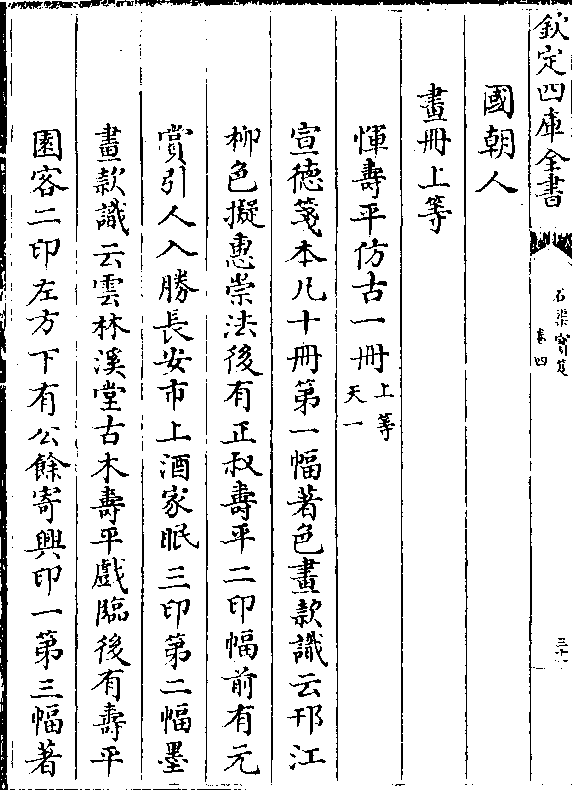 欽定四庫全書
石渠寶笈
卷四
三十一
國朝人
畫冊上等
惲壽平仿古一冊上等天一
宣德箋本凡十冊第一幅著色畫款識云邗江
柳色擬惠崇法後有正叔壽平二印幅前有元
賞引人入勝長安市上酒家眠三印第二幅墨
畫款識云雲林溪堂古木壽平戲臨後有壽平
園客二印左方下有公餘寄興印一第三幅著